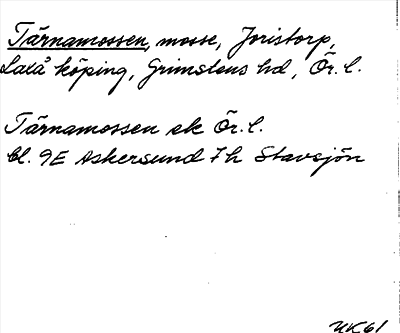 Tärnamossen, mosse, Joristorp,
Laxå köping, Grimstens hd, Ör. l.
Tärnamossen ek Ör. l.
bl. 9E Askersund 7h Stavsjön
UK61